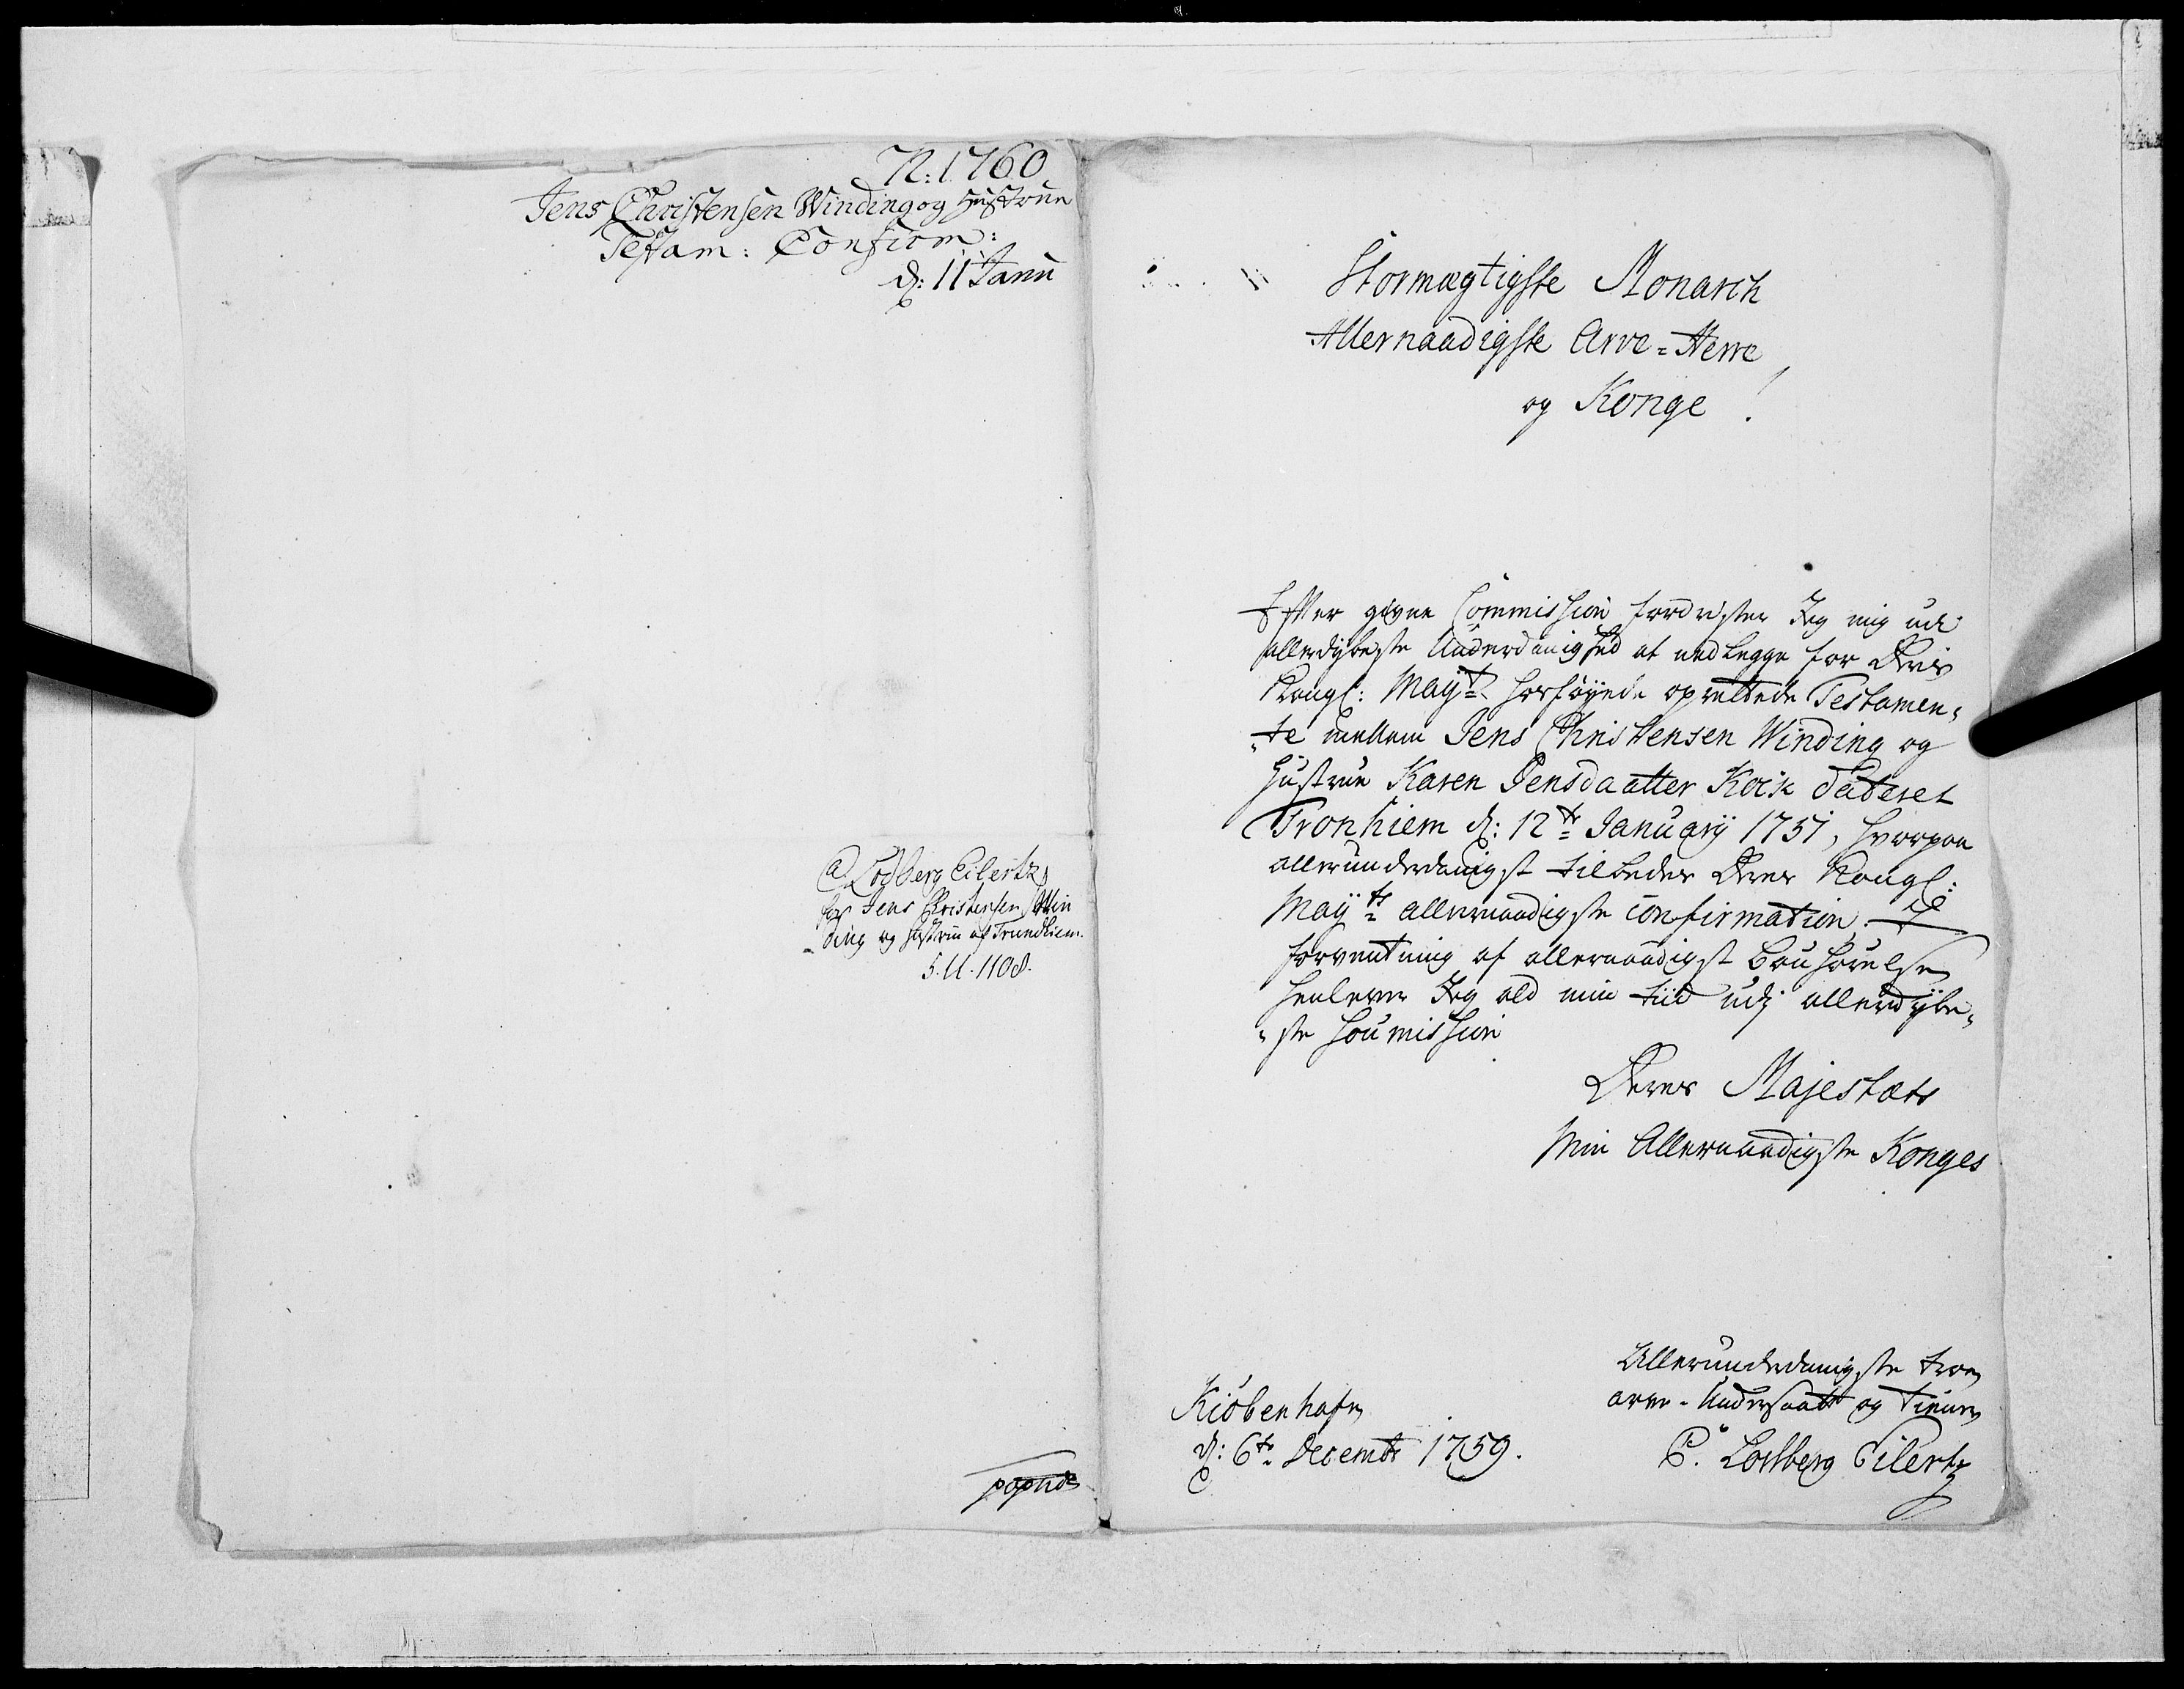 N: 1. 1760
Jens Christensen Winding og Hustrue
Testam: Confirm:
d: 11 Janu
C. Lodberg Eilertz
for Jens Christensen Win
-ding og Hustrue af Trundhiem.
5. U. 1108.
Stormægtigste Monarch
Allernaadigste Arve=Herre
og Konge!
Efter givne Commission fordrister Jeg mig udi
allerdybeste Underdanighed at nedlegge for Deris
Kongl: Mayts. hosføyede oprettede Testamen=
=te mellem Jens Christensen Winding og
Hustrue Karen Jensdaatter Koik dateret
Tronhiem d: 12te January 1751, hvorpaa
allerunderdanigst tilbedes Deres Kongl:
Mayts allernaadigste confirmation. I
forventning af allernaadigst bønhørelse
henlever Jeg ald min tiid udj allerdybe=
=ste soumission
Deres Majestæts
Min Allernaadigste Konges
Kiöbenhafn
d: 6te Decembr 1759.
Allerunderdanigste troe
arve-Undersaatt og tienere
C. Lodberg Eilertz